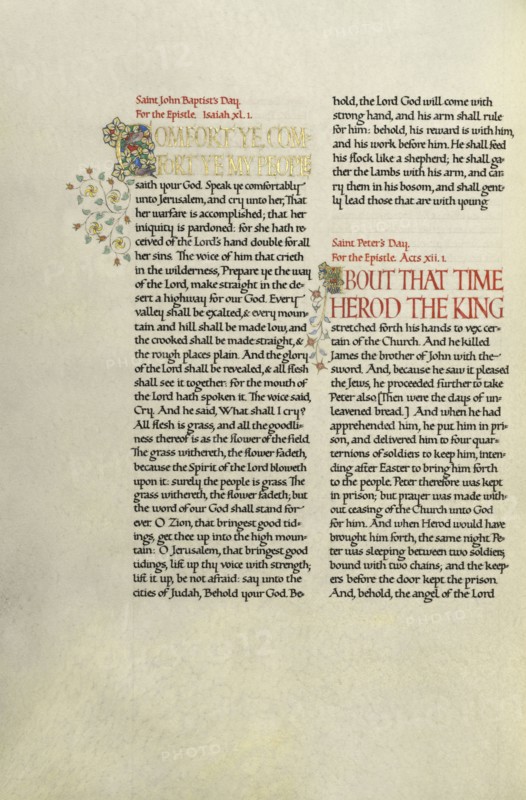 Saint John Baptist's Day.
For the Epistle. Isaiah xl. 1.
COMFORT YE, COM-
FORT YE MY PEOPLE
saith your God. Speak ye comfortably
unto Jerusalem, and cry unto her, That
her warfare is accomplished; that her
iniquity is pardoned: for she hath re-
ceived of the Lord's hand double for all
her sins. The voice of him that crieth
in the wilderness, Prepare ye the way
of the Lord, make straight in the de-
sert a highway for our God. Every
valley shall be exalted, & every moun-
tain and hill shall be made low, and
the crooked shall be made straight, &
the rough places plain. And the glory
of the Lord shall be revealed, & all flesh
shall see it together: for the mouth of
the Lord hath spoken it. The voice said,
Cry. And he said, What shall I cry?
All flesh is grass, and all the goodli-
ness thereof is as the flower of the field.
The grass withereth, the flower fadeth,
because the Spirit of the Lord bloweth
upon it: surely the people is grass. The
grass withereth, the flower fadeth; but
the word of our God shall stand for-
ever. O Zion, that bringest good tid-
ings, get thee up into the high moun-
tain: O Jerusalem, that bringest good
tidings, lift up thy voice with strength;
lift it up, be not afraid: say unto the
cities of Judah, Behold your God. Be-
hold, the Lord God will come with
strong hand, and his arm shall rule
for him: behold, his reward is with him,
and his work before him. He shall feed
his flock like a shepherd; he shall ga-
ther the lambs with his arm, and car-
ry them in his bosom, and shall gent-
ly lead those that are with young.
Saint Peter's Day.
For the Epistle. Acts xii. 1.
ABOUT THAT TIME
HEROD THE KING
stretched forth his hands to vex cer-
tain of the Church. And he killed
James the brother of John with the
sword. And, because he saw it pleased
the Jews, he proceeded further to take
Peter also. [Then were the days of un-
leavened bread.] And when he had
apprehended him, he put him in pri-
son, and delivered him to four quar-
ternions of soldiers to keep him, inten-
ding after Easter to bring him forth
to the people. Peter therefore was kept
in prison; but prayer was made with-
out ceasing of the Church unto God
for him. And when Herod would have
brought him forth, the same night Pe-
ter was sleeping between two soldiers,
bound with two chains; and the keep-
ers before the door kept the prison.
And, behold, the angel of the Lord